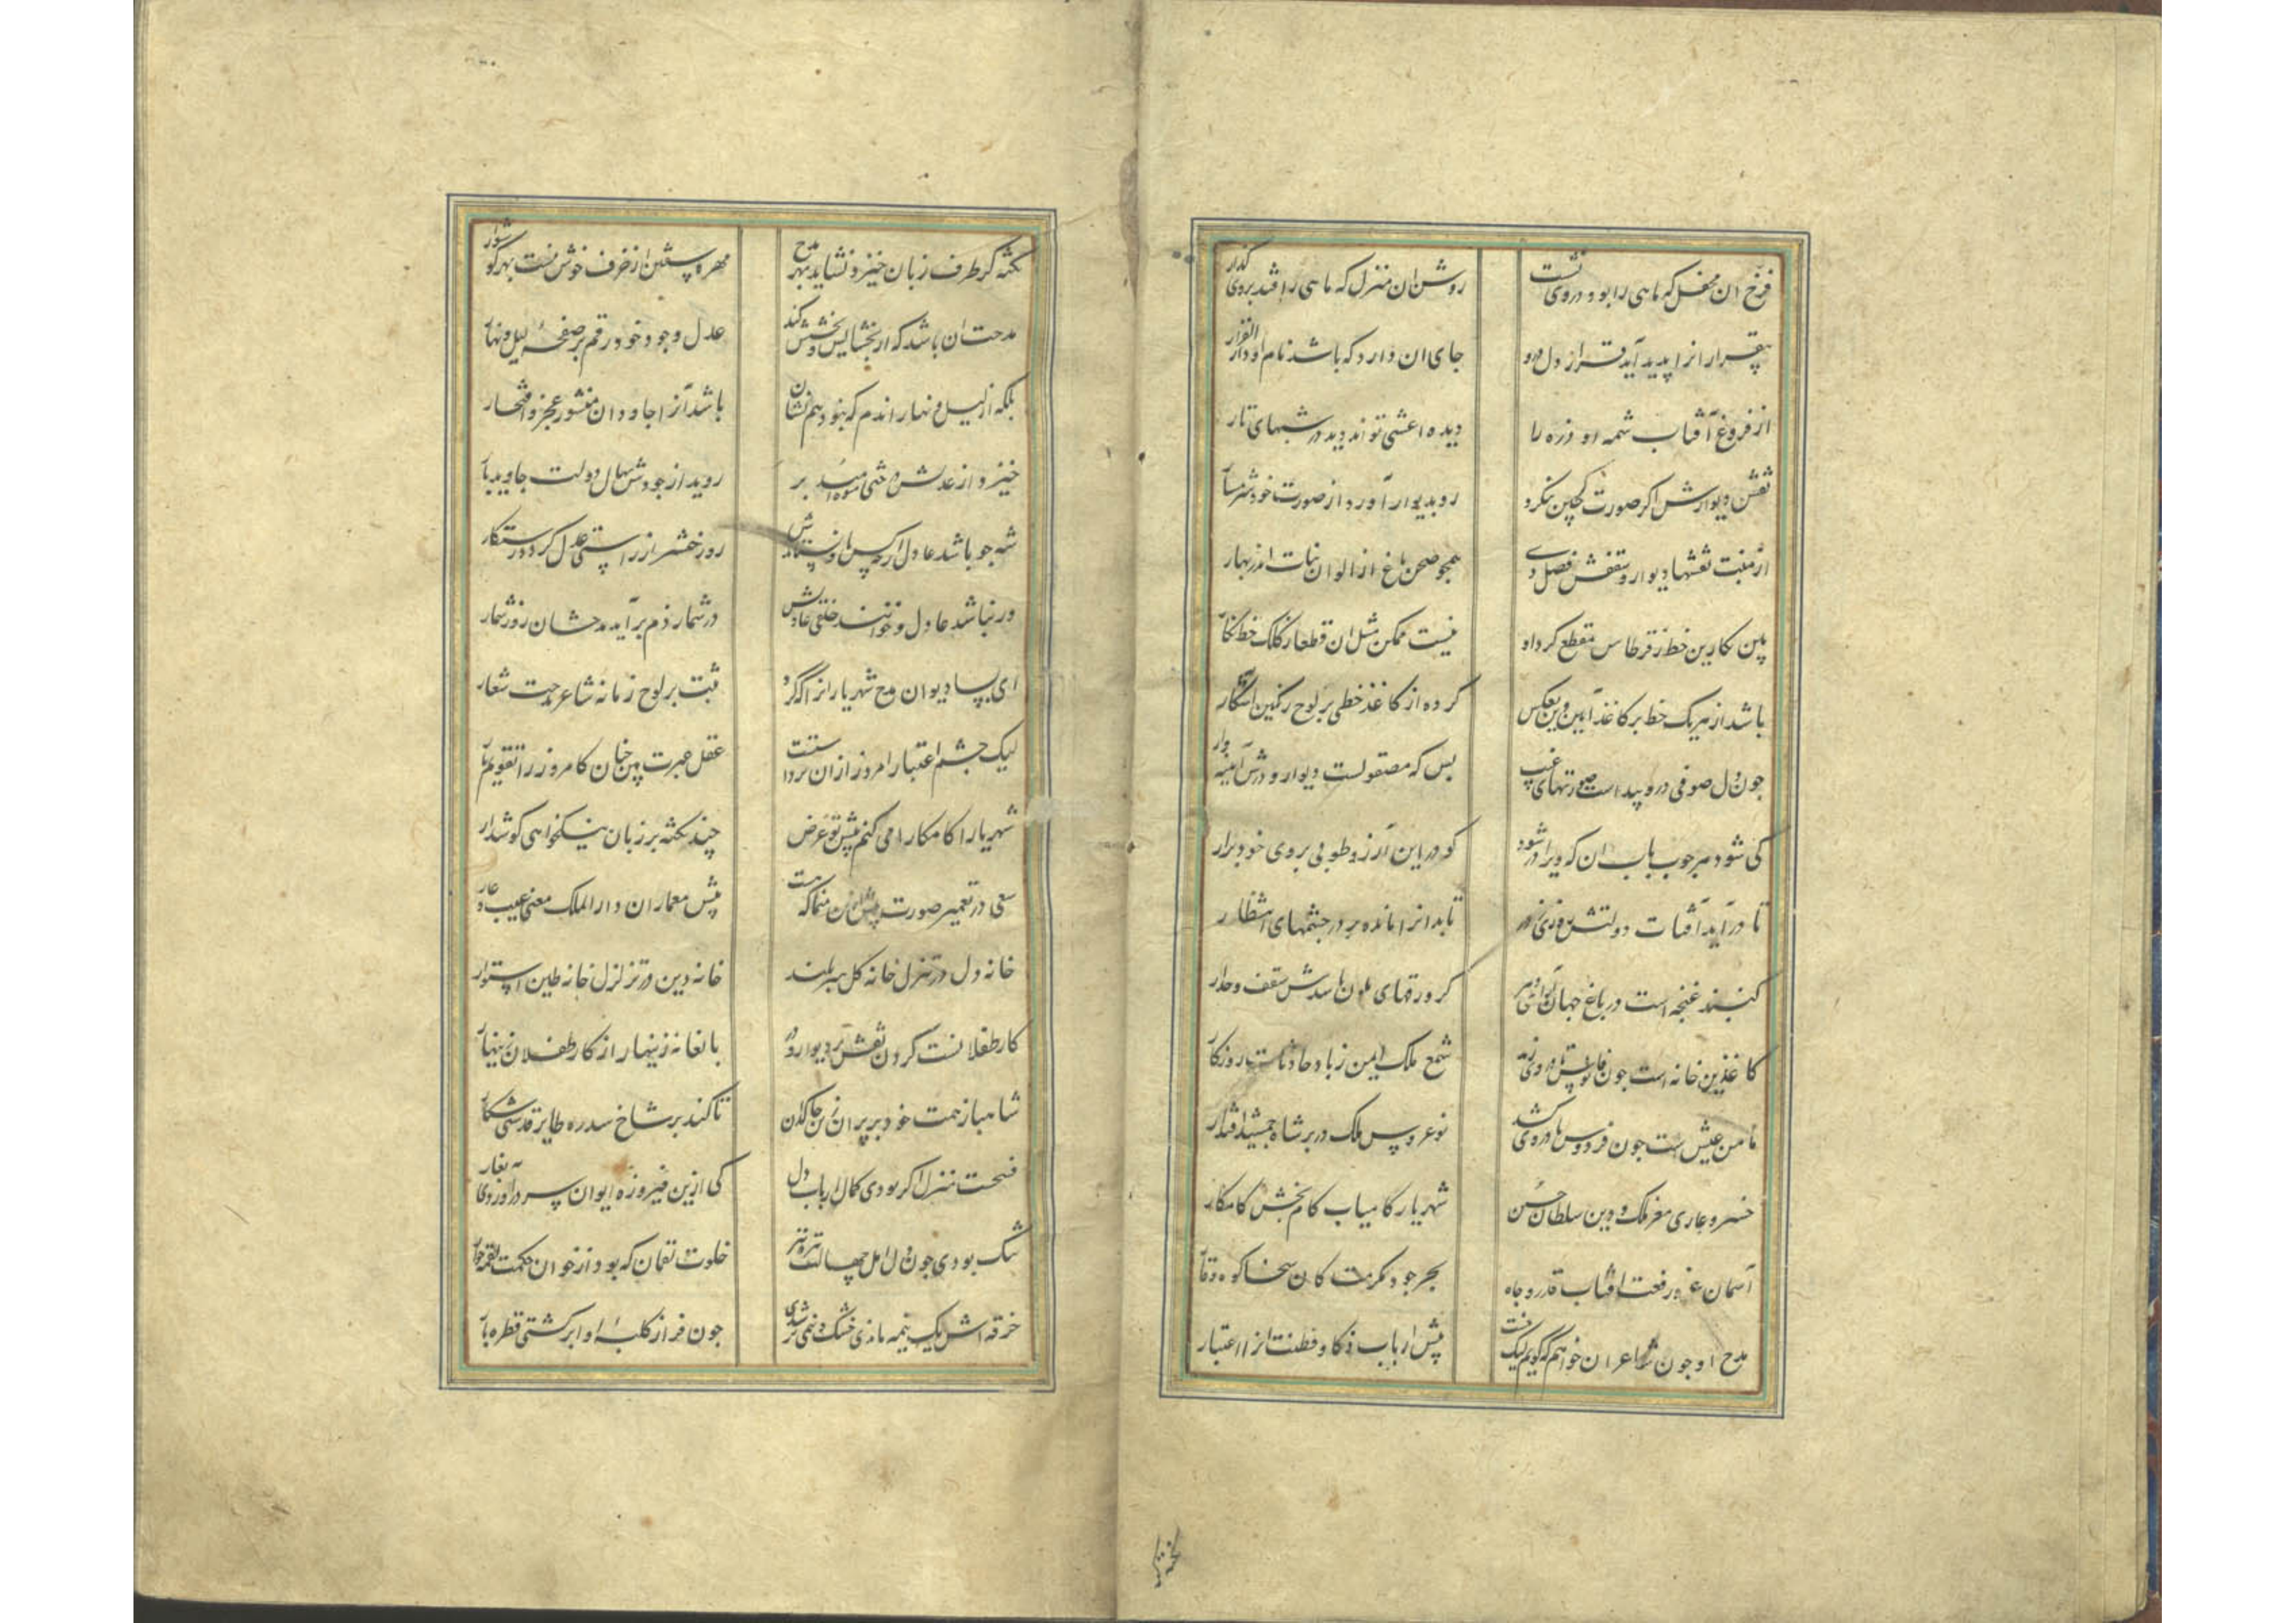 فرخ ان محفل که ماهی را بود در وی نشست
روشن ان منزل که ماهی را فتد بروی کذار
بیقرار انرا پدید آید قرار از دل درو
جای ان دارد که باشد نام او دار القرار
از فروغ آفتاب شمسه او ذره را
دیده اعشی تواند دید در شبهای تار
نقش دیوارش اکر صورت کر چین بنکرد
رو بدیوار آورد از صورت خود شرمسار
از منبت نقشها دیوار و سقفش فصل دی
همجو صحن باغ از الوان نبات اندر بهار
بین نکارین خط ز قرطاس مقطع کرد او
نیست ممکن مثل ان قطعا ز کلک خط نکار
باشد از هر یک خط بر کاغذ آیین وین بعکس
کرده از کاغذ خطی بر لوح رنکین آشکار
جون دل صوفی درو پیداست صورتهای غیب
بس که مصقولست دیوار و درش آیینه وار
کی شود هر جوب باب ان که ویرا در شود
کو در این آرزو طوبی بروی خود برار
تا در آید آفتاب دولتش روزی ز در
تابدانرا مانده بر در جشمهای انتظار
کنبد غنجه است در باغ جهان
کر ورقهای ملون باشدش سقف و جدار
کاغذین خانه است جون فانوس
شمع ملک ایمن ز باد حادثات روزکار
مامن عیش است جون فردوس تا در وی کشد
نو عروس ملک در بر شاه جمشید اقتدار
خسرو غازی معز ملک و دین سلطان حسین
شهریار کامیاب کام بخش کامکار
آسمان عز و رفعت افتاب قدر و جاه
بحر جود و مکرمت کان سخا کوه وقار
مدح او جون شاعران خواهم که کویم لیک نیست
پیش ارباب ذکا و فطنت انرا اعتبار
نکته کز طرف زبان خیزد نشاید بهر مدح
مهره سفتن از خزف خوش نیست بهر کوشوار
مدحت ان باشد که از بخشایش و بخشش کند
عدل وجود خود رقم بر صفحه لیل و نهار
بلکه از لیل و نهار اندم که نبود هم نشان
باشد آنرا جاودان منشور عز و افتخار
خیزد از عدلش درختی میوه امید بر
روید از جودش نهال دولت جاوید بار
شه جو باشد عادل ار کس مدح او نستایدش
روز حشر از راستی عدل کردد رستکار
ور نباشد عادل و خوانند خلقی عادلش
در شمار ذم بر آید مدحشان روز شمار
ای بسا دیوان مدح شهریاران را که کرد
ثبت بر لوح زمانه شاعر مدحت شعار
لیک جشم اعتبار امروز از ان بر دا ستت
عقل عبرت بین جنان کامروز را تقویم پار
شهریارا کامکارا می کنم پیش تو عرض
چند نکته بر زبان نیکخواهی کوش دار
سعی در تعمیر صورت بیش ازین منما که هست
پیش معماران دار الملک معنی عیب و عار
خانه دل در تنزل خانه کل سربلند
خانه دین در تزلزل خانه طین استوار
کار طفلانست کردن نقش بر دیوار و در
بالغانه زینهار از کار طفلان زینهار
شاهباز همت خود بر پران زین خاکدان
تا کند بر شاخ سدره طایر قدسی شکار
فسحت منزل اکر بودی کمال ارباب دل
کی ازین فیروزه ایوان سر در آوردی بغار
تنک بودی جون دل اهل جهالت تیره تر
خلوت لقمان که بود از خوان حکمت لقمه خوار
خرقه اش یک نیمه ماندی خشک و نیمی تر شدی
جون فراز کلبه او ابر کشتی قطره بار
نکته